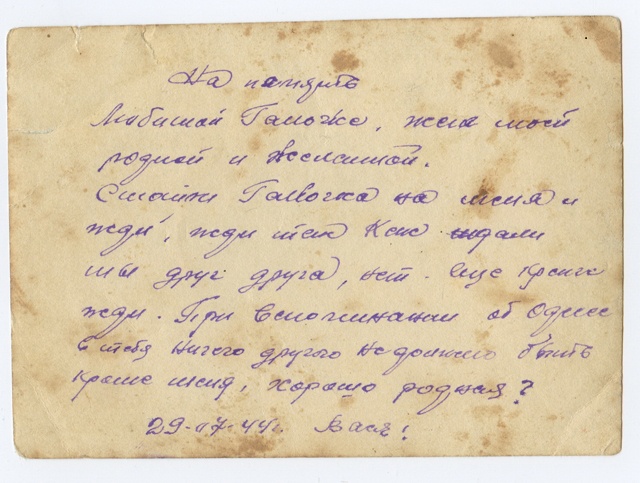 На память
Любимой Галочке, жене моей
родной и желанной.
Смотри Галочка на меня и
жди, жди так как ждали
мы друг друга, нет. Еще крепче
жди. При вспоминании об Одессе
у тебя ничего другого не должно быть
кроме меня, хорошо родная?
29-07-44г. Вася!